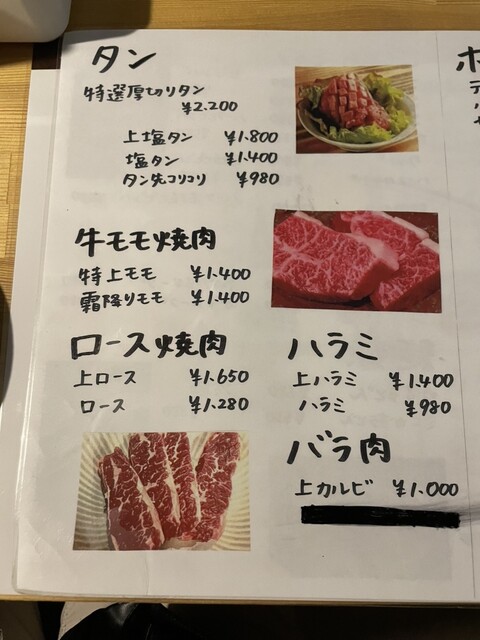 タン
特選厚切りタン
¥2.200
上塩タン ¥1.800
塩タン ¥1.400
タン先コリコリ ¥980
牛モモ焼肉
特上モモ ¥1.400
霜降りモモ ¥1.400
ロース焼肉
上ロース ¥1.650
ロース ¥1.280
ハラミ
上ハラミ ¥1.400
ハラミ ¥980
バラ肉
上カルビ ¥1.000